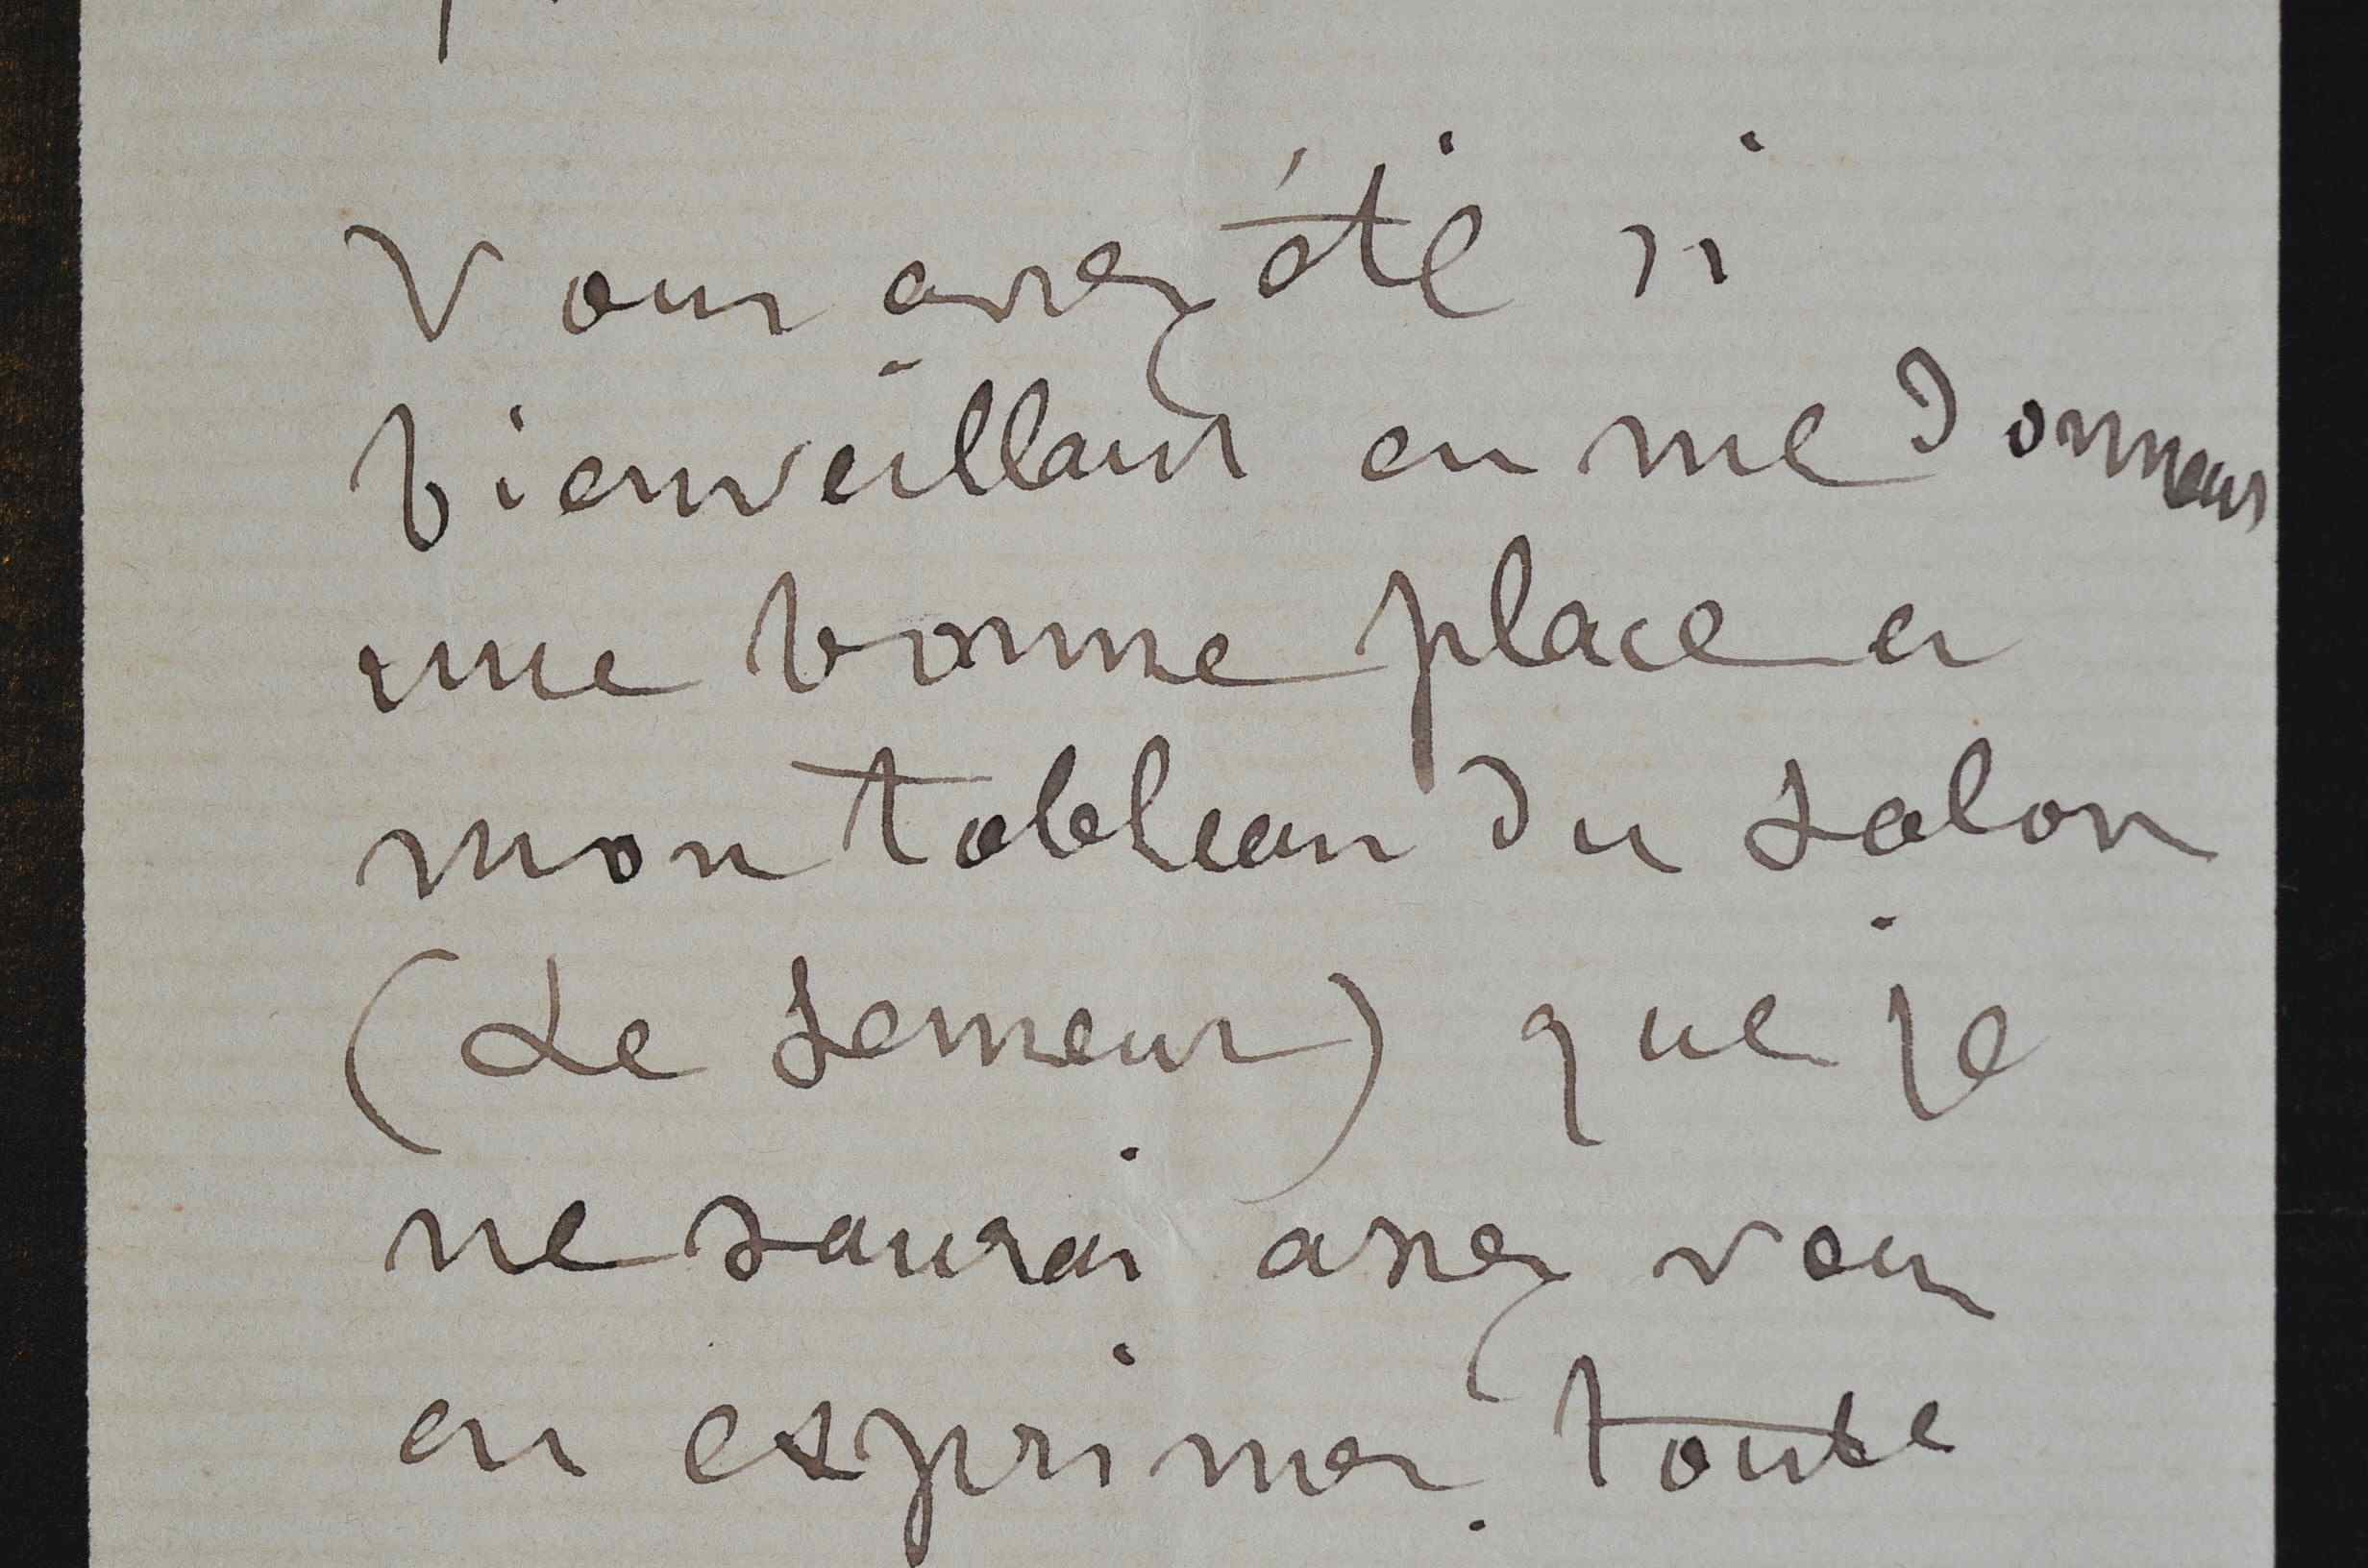 Vous avez été si
bienveillant en me donnant
une bonne place a
mon tableau du salon
(Le semeur) que je
ne saurai assez vous
en exprimer toute